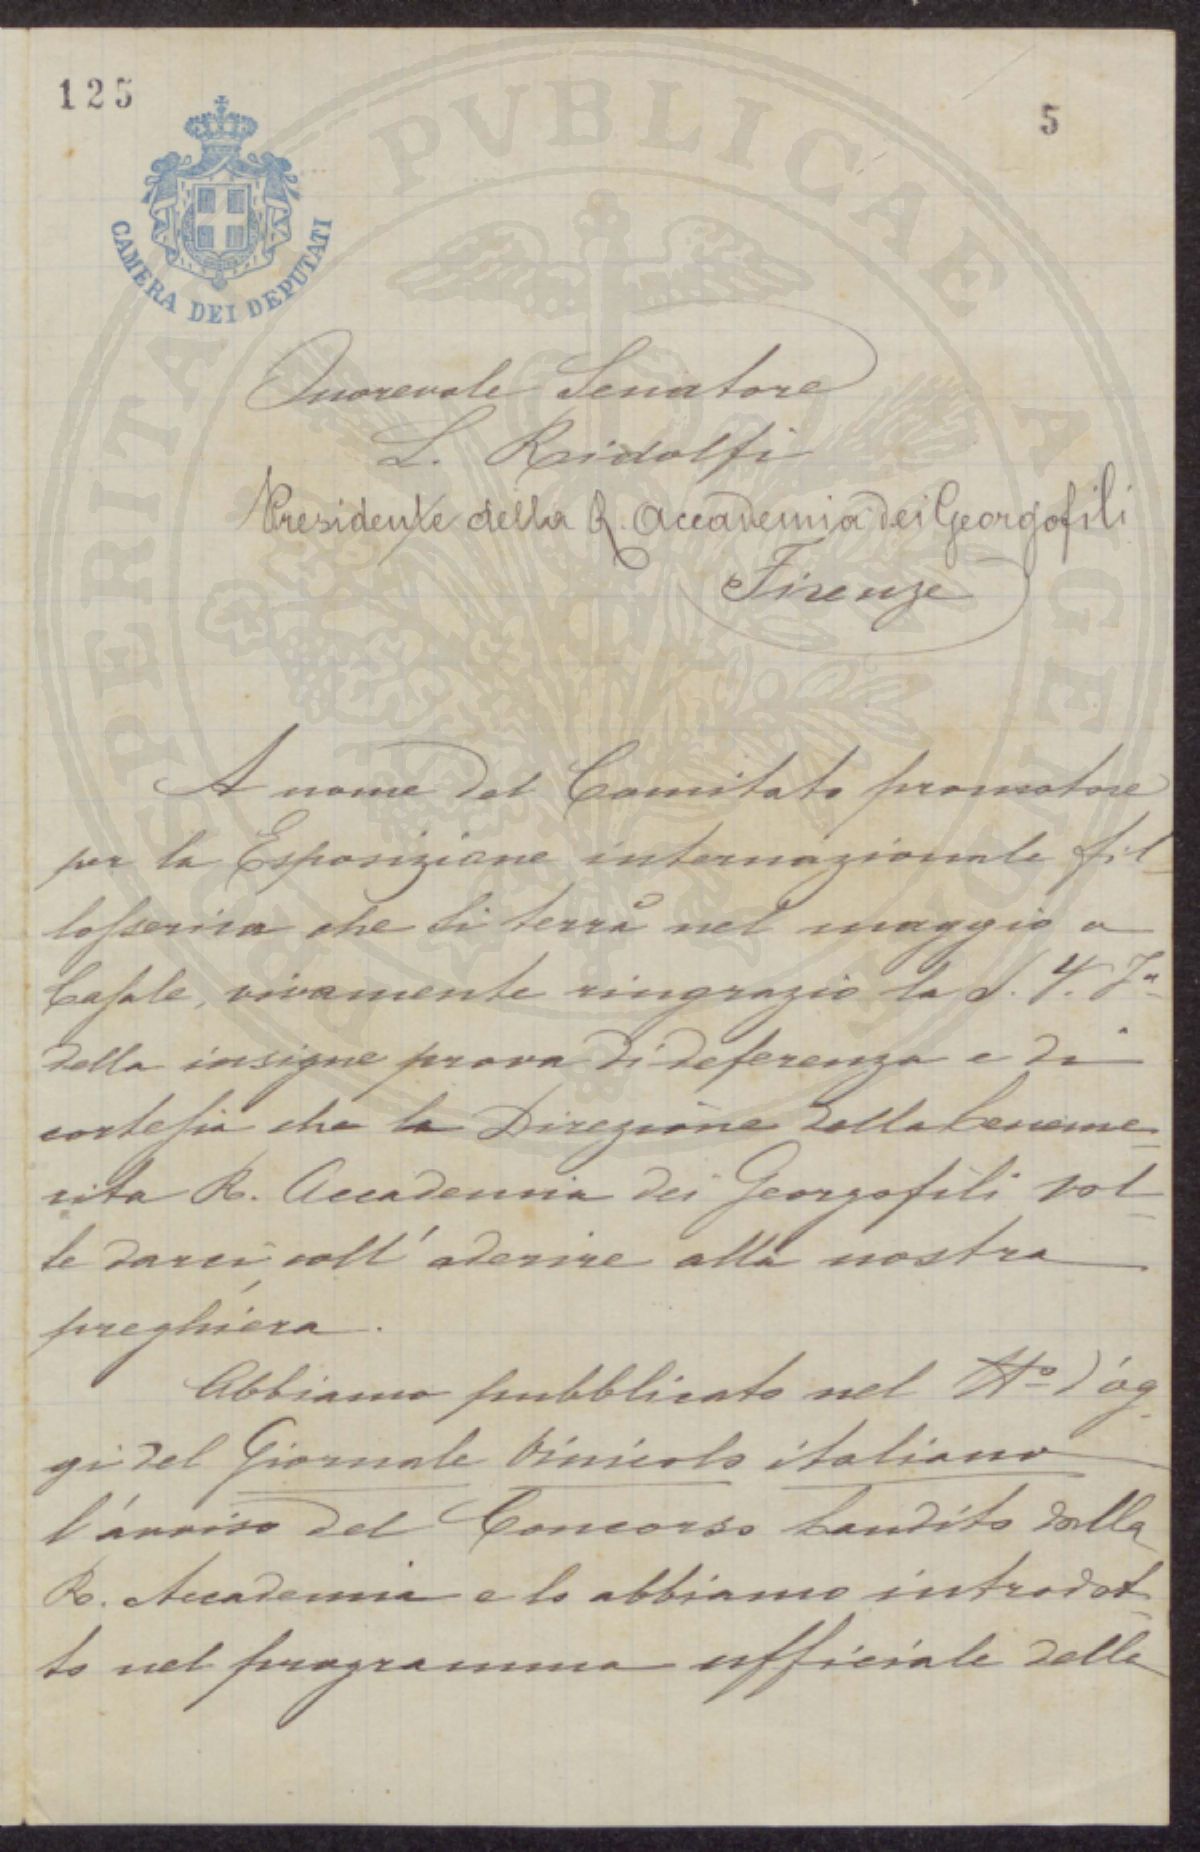 125
5
CAMERA DEI DEPUTATI
PROSPERITATI PVBLICAE AVGENDAE
Onorevole Senatore
L. Ridolfi
Presidente della R. Accademia dei Georgofili
Firenze
A nome del Comitato promotore
per la Esposizione internazionale fil-
losserica che si terrà nel maggio a
Casale, vivamente ringrazio la S. V. Ill.
della insigne prova di deferenza e di
cortesia che la Direzione della beneme-
rita R. Accademia dei Georgofili vol-
le darci coll' aderire alla nostra
preghiera.
Abbiamo pubblicato nel N.º d'og-
gi del Giornale Vinicolo italiano
l'avviso del Concorso bandito dalla
R. Accademia e lo abbiamo introdot-
to nel programma ufficiale della